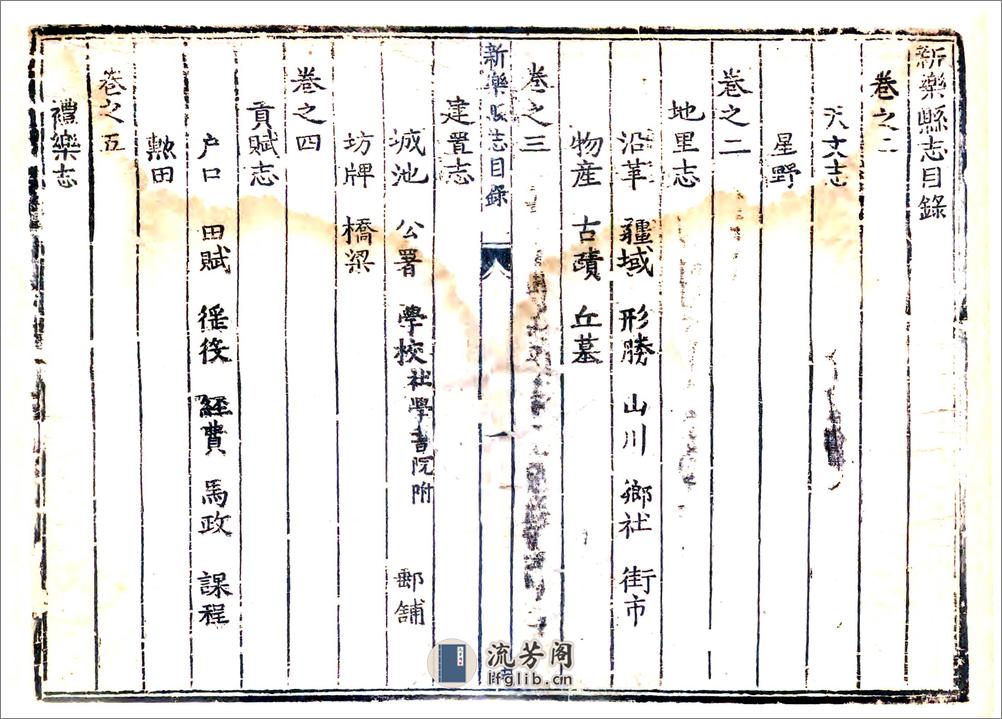 新樂縣志目錄
卷之一
天文志
星野
卷之二
地里志
沿革 疆域 形勝 山川 鄉社 街市
物產 古蹟 丘墓
卷之三
新樂縣志目錄 一
建置志
城池 公署 學校 社學書院附 郵舖
坊牌 橋梁
卷之四
貢賦志
戶口 田賦 徭役 經費 馬政 課程
勲田
卷之五
禮樂志
流芳阁
lfglib.cn